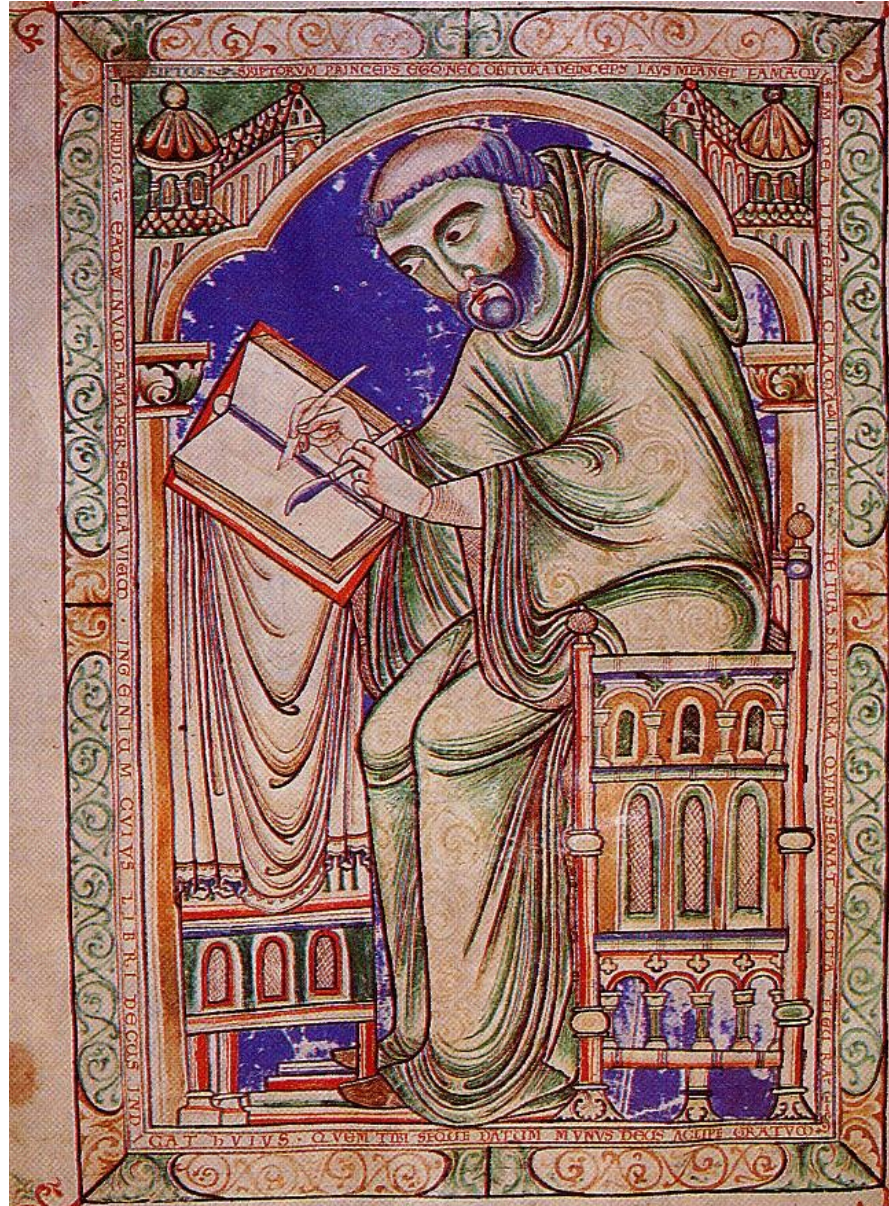 SRIPTORVM PRINCEPS EGO NEC OBITURA DEINCEPS LAVS MEA NEC FAMA QVI
SIM MEA LITTERA CLAMA
TE TUA SRIPTVRA QVEM SIGNAT PICTA FIGURA
PREDICAT EADWINVM FAMA PER SECULA VIVVM · INGENIUM CVIVS LIBRI DECUS IND
CAT hVIVS · QVEM TIBI SEQUE DATUM MVNVS DEUS ACCIPE GRATVM